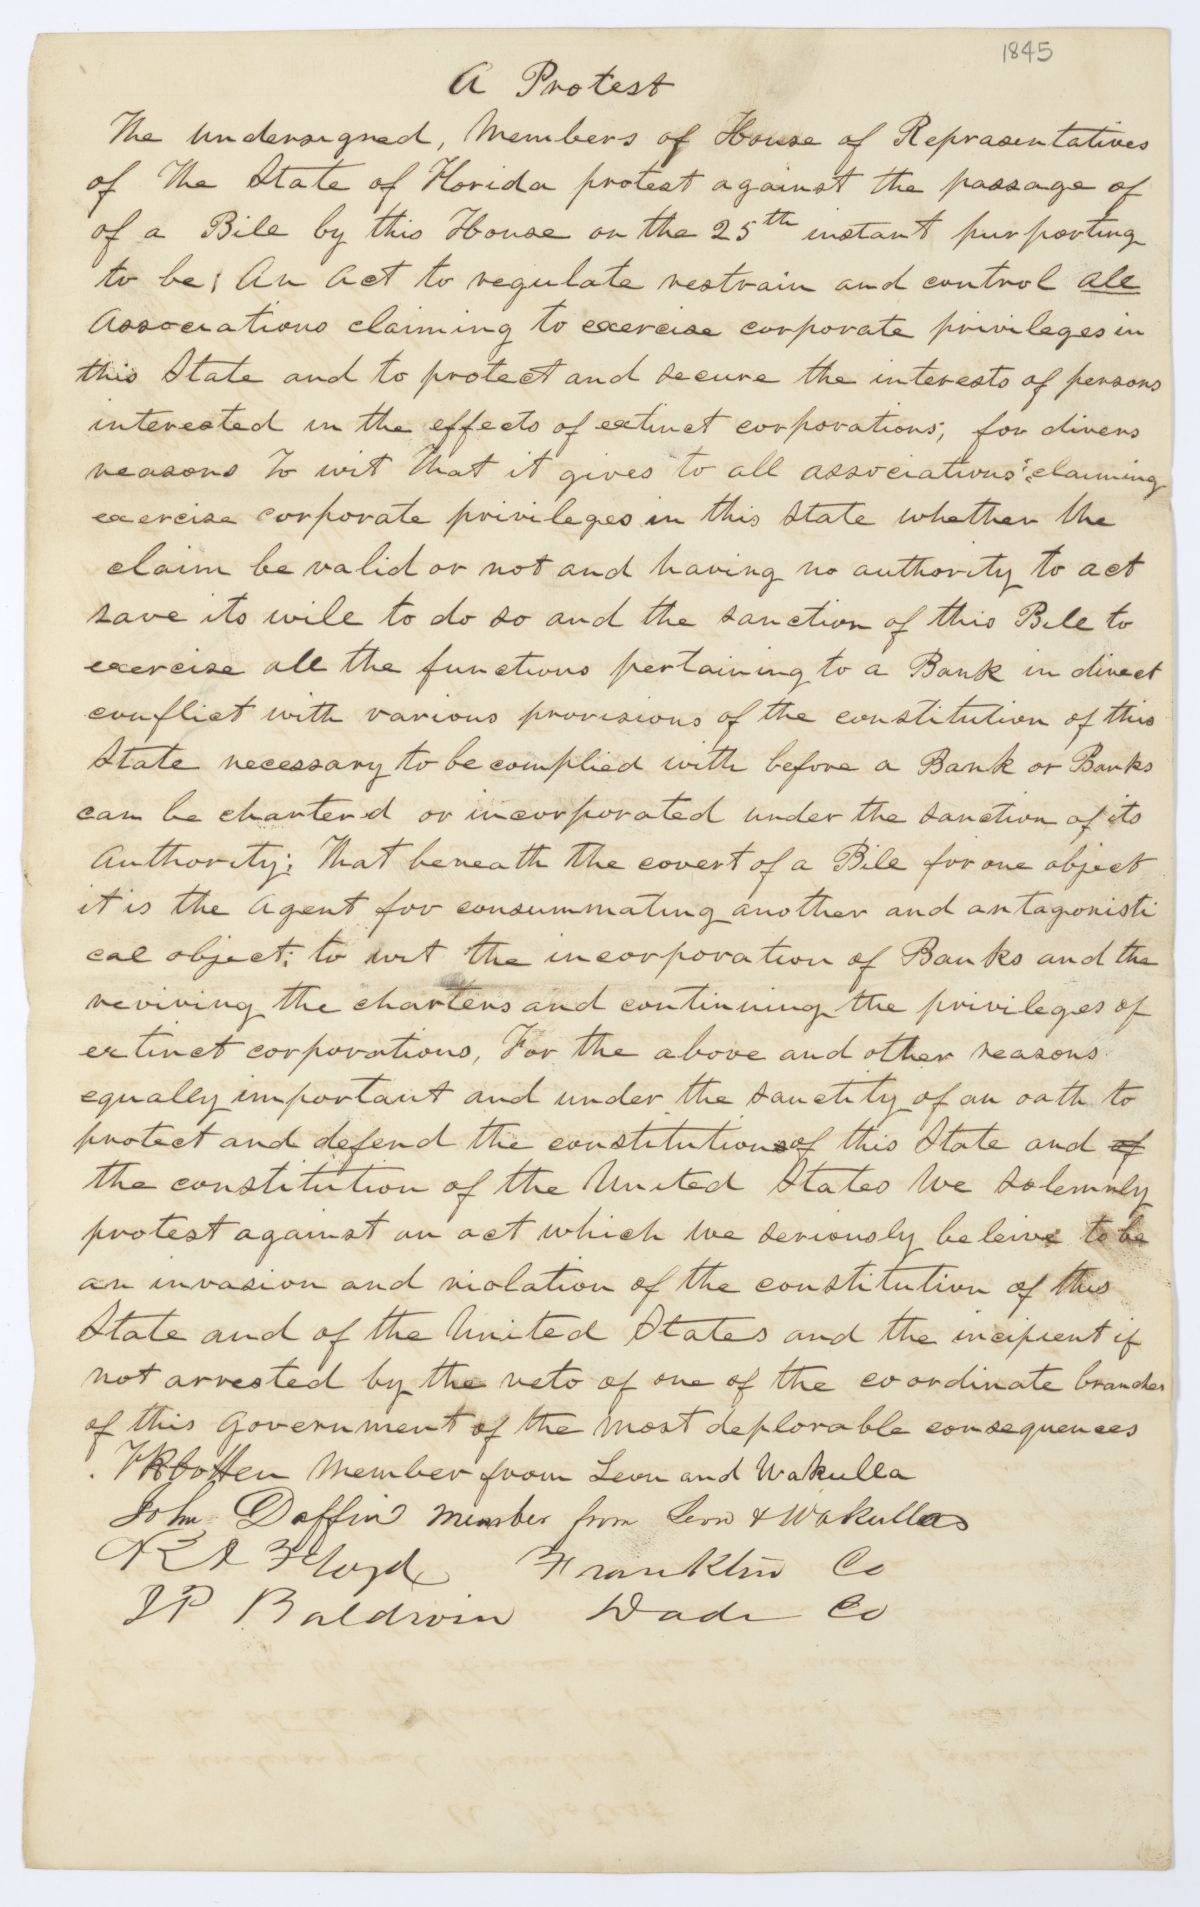 1845
A Protest
The undersigned, Members of House of Reprasentatives
of The State of Florida protest against the passage of
of a Bill by this House on the 25th instant purporting
to be; An Act to regulate restrain and control all
Associations claiming to exercise corporate privileges in
this State and to protect and secure the interests of persons
interested in the effects of extinct corporations; for divers
reasons To wit That it gives to all associations claiming
exercise corporate privileges in this State whether the
claim be valid or not and having no authority to act
save its will to do so and the sanction of this Bill to
exercise all the functions pertaining to a Bank in direct
conflict with various provisions of the constitution of this
State necessary to be complied with before a Bank or Banks
can be charterd or incorporated under the sanction of its
Authority; That beneath the covert of a Bill for one object
it is the Agent for consummating another and antagonisti
cal object; to wit the incorporation of Banks and the
reviving the charters and continuing the privileges of
extinct corporations, For the above and other reasons
equally important and under the sanctity of an oath to
protect and defend the constitution of this State and of
the constitution of the United States We solemnly
protest against an act which we seriously beleive to be
an invasion and violation of the constitution of this
State and of the United States and the incipient if
not arrested by the veto of one of the coordinate branches
of this Government of the most deplorable consequences
Member from Leon and Wakulla
John Duffin member from Leon & Wakulla
Floyd Franklin Co
J P Baldwin Dade Co